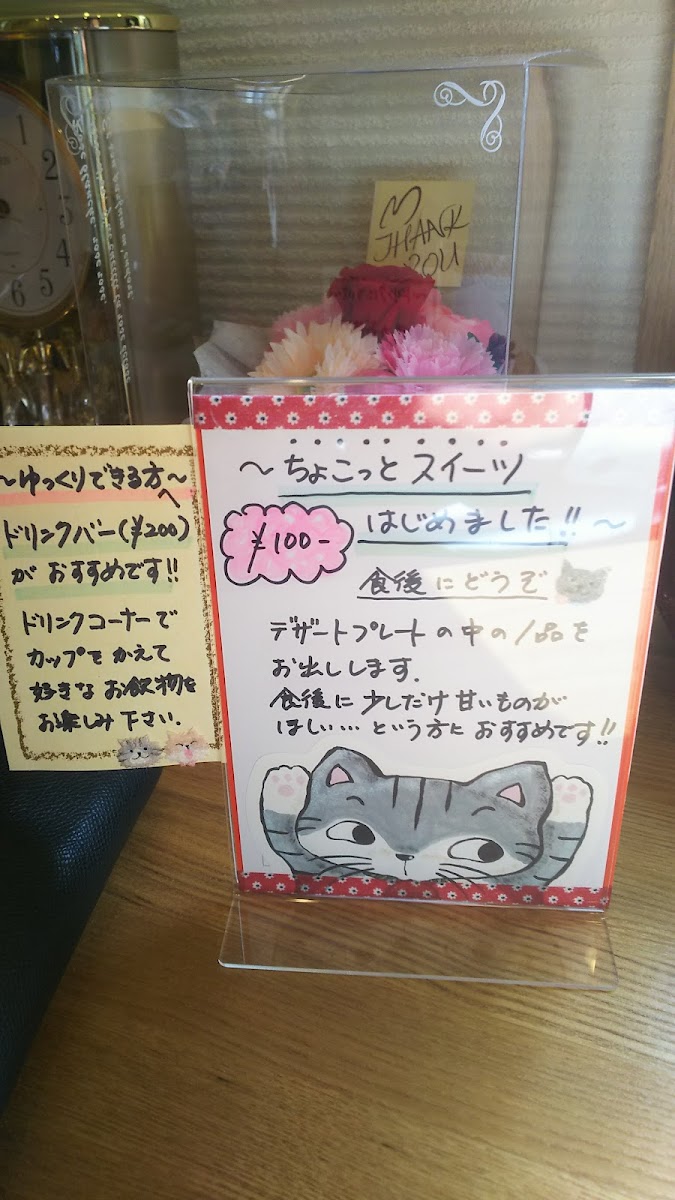 1
2
3
4
5
6
♡
THANK
YOU
～ゆっくりできる方へ～
ドリンクバー(¥200)
が おすすめです!!
ドリンクコーナーで
カップを かえて
好きな お飲物を
お楽しみ下さい.
～ちょこっと スイーツ
¥100-
はじめました!!～
食後にどうぞ
デザートプレートの中の1品を
お出しします.
食後に 少しだけ 甘いものが
ほしい…… という方に おすすめです!!